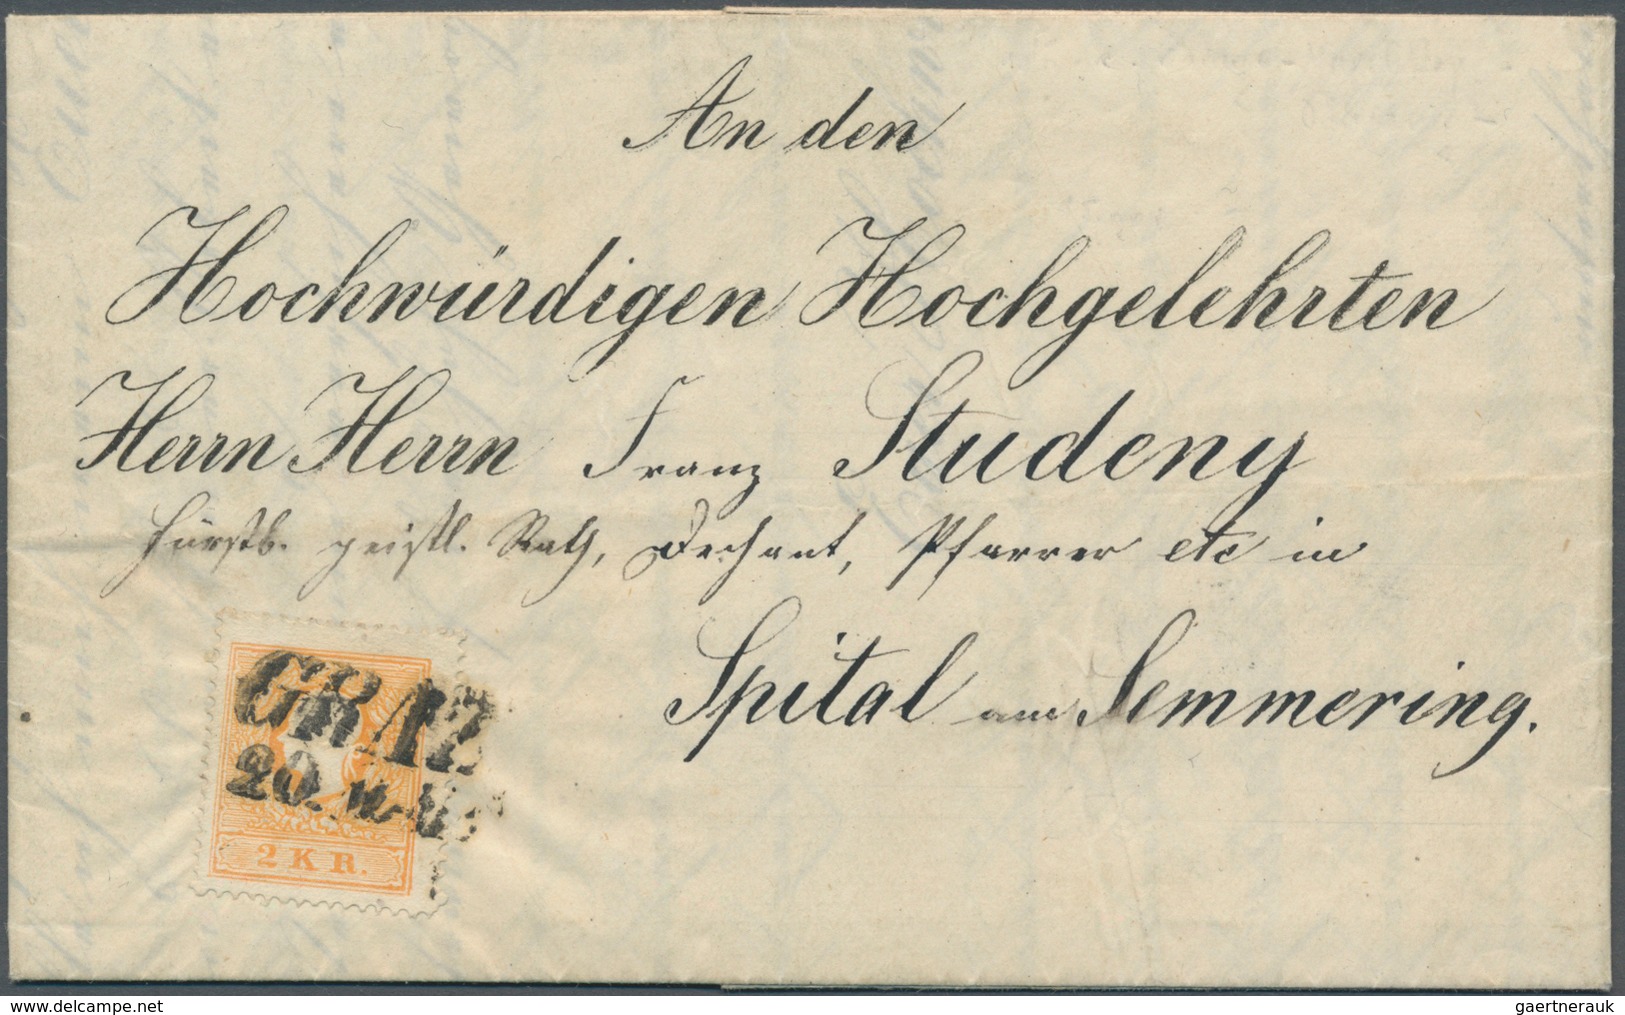 An den
Hochwürdigen Hochgelehrten
Herrn Herrn Franz Studeny
fürstb. geistl. Rath, Dechant, Pfarrer etc in
Spital am Semmering.
GRAZ
20.
2 KR.
www.delcampe.net
gaertnerauk